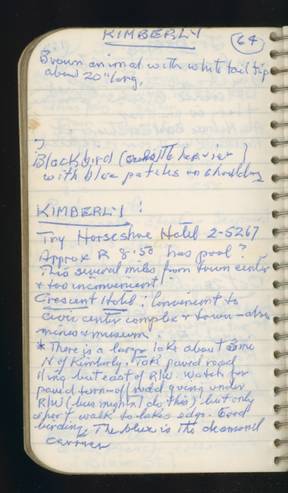 KIMBERLY
64
Brown animal with white tail tip
about 20" long.
Blackbird ( heavier)
with blue patches on shoulders
KIMBERLY:
Try Horseshoe Hotel 2-5267
Approx R 8.50 has pool?
This several miles from town center
& too inconvenient
Crescent Hotel: Convenient to
civic center complex & town - also
mines & museum.
* There is a large lake about 5 mi
N of Kimberly. Take paved road
1 mi but east of R/W. Watch for
paved turnoff (road going under
R/W (bus might do this) but only
short walk to lakes edge. Good
birding. The blue is the diamond